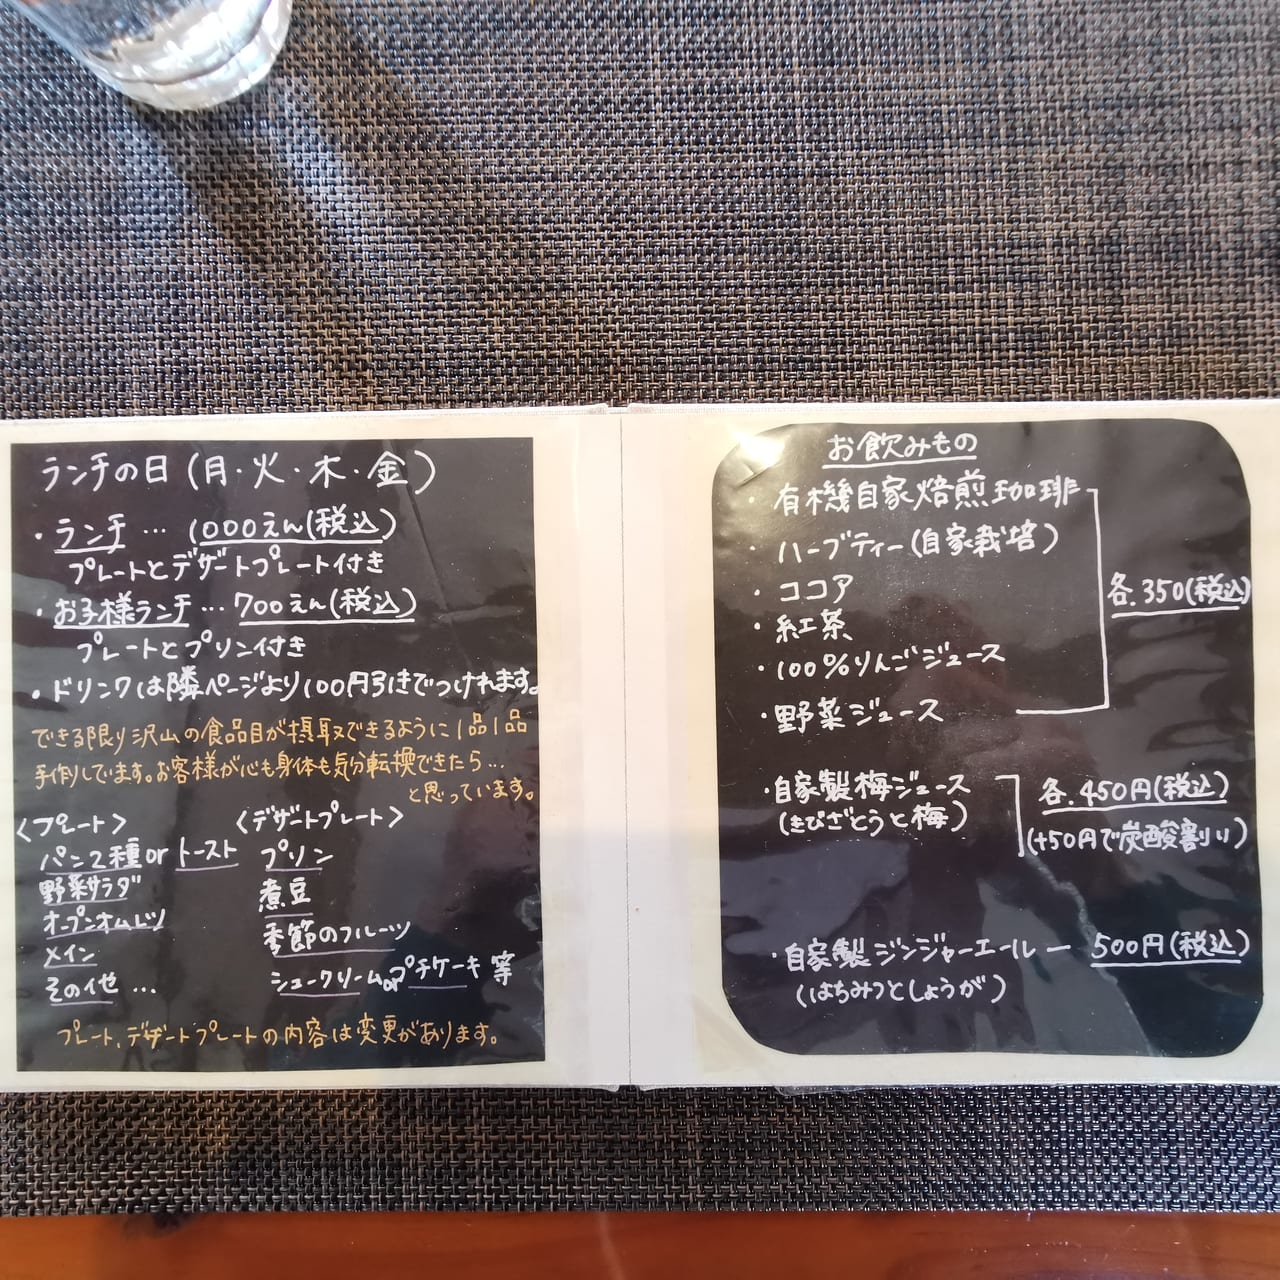 ランチの日(月・火・木・金)
・ランチ… 1000えん(税込)
プレートとデザートプレート付き
・お子様ランチ…700えん(税込)
プレートとプリン付き
・ドリンクは隣ページより100円引きでつけれます。
できる限り沢山の食品目が摂取できるように1品1品
手作りしています。お客様が心も身体も気分転換できたら…
と思っています。
〈プレート〉
パン2種orトースト
野菜サラダ
オープンオムレツ
メイン
その他…
〈デザートプレート〉
プリン
煮豆
季節のフルーツ
シュークリームorプチケーキ等
プレート、デザートプレートの内容は変更があります。
お飲みもの
・有機自家焙煎珈琲
・ハーブティー(自家栽培)
・ココア
・紅茶
・100%りんごジュース
・野菜ジュース
各.350(税込)
・自家製梅ジュース
(きびざとうと梅)
各.450円(税込)
(+50円で炭酸割り)
・自家製ジンジャーエール ー 500円(税込)
(はちみつとしょうが)